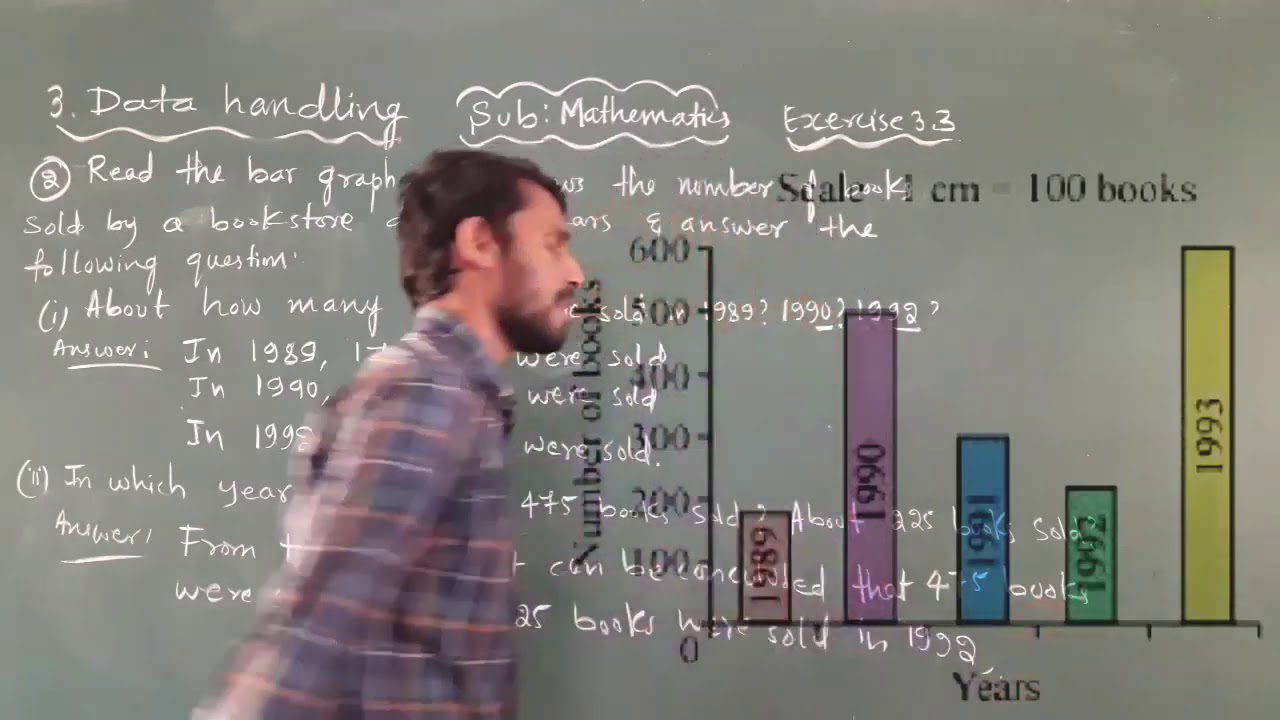 3. Data handling
Sub: Mathematics
Exercise 3.3
② Read the bar graph the number of books
Sold by a bookstore & answer the
following question:
(i) About how many sold in 1989? 1990? 1992?
Answer: In 1989, were sold
In 1990, were sold
In 1992 were sold.
(ii) In which year 475 books sold? About 225 books sold?
Answer: From can be concluded that 475 books
were 25 books were sold in 1992
Scale 1 cm = 100 books
600
500
400
300
200
100
0
Number of books
1989
1990
1991
1992
1993
Years